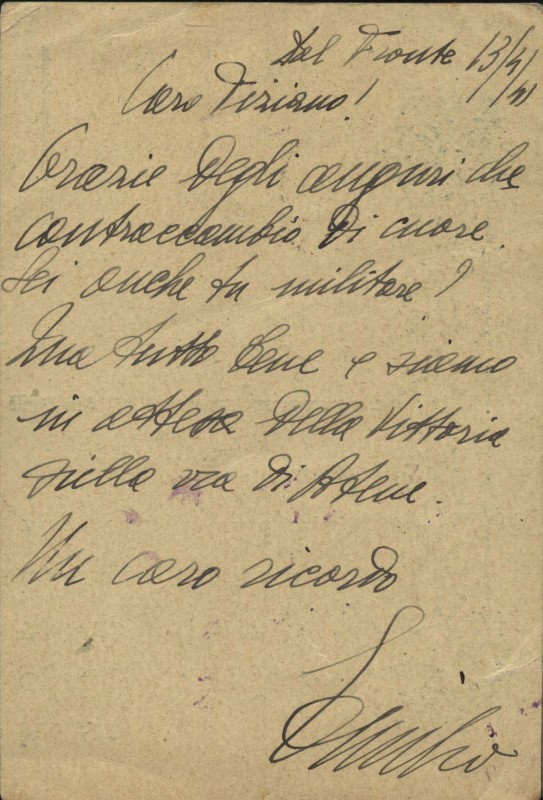 Dal Fronte 13/4/41
Caro Tiziano!
Grazie degli auguri che
contraccambio di cuore.
Sei anche tu militare?
Qua tutto bene e siamo
in attesa della Vittoria
sulla via di Atene.
Un caro ricordo